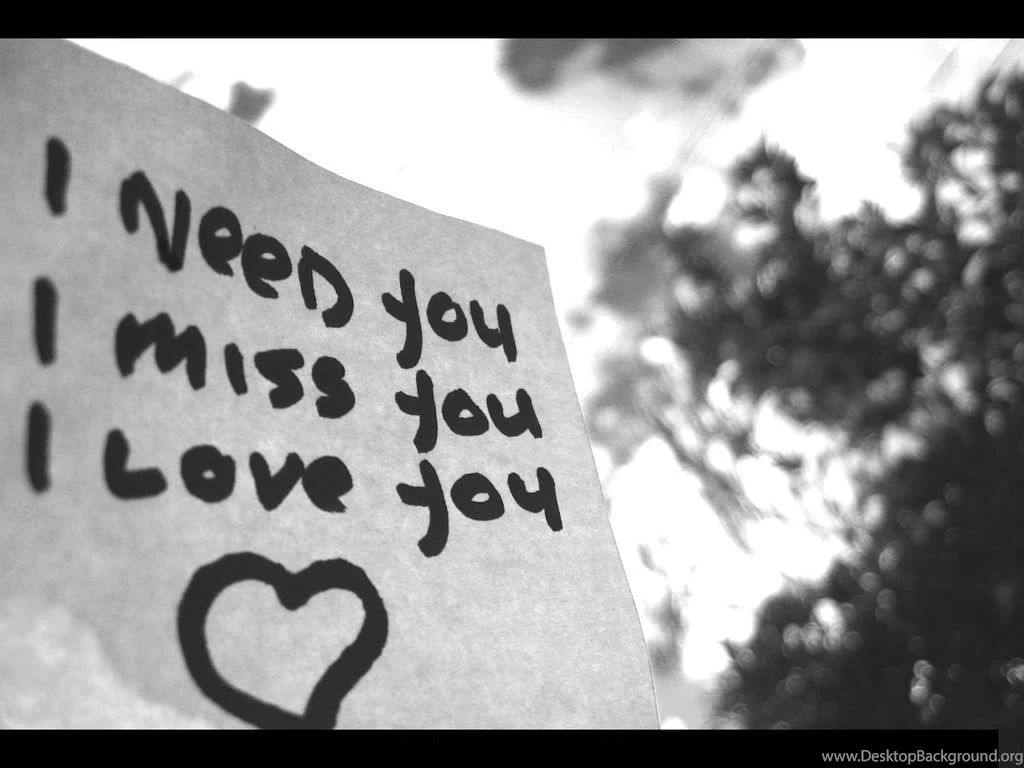 I Need you
I miss you
I Love you
www.DesktopBackground.org